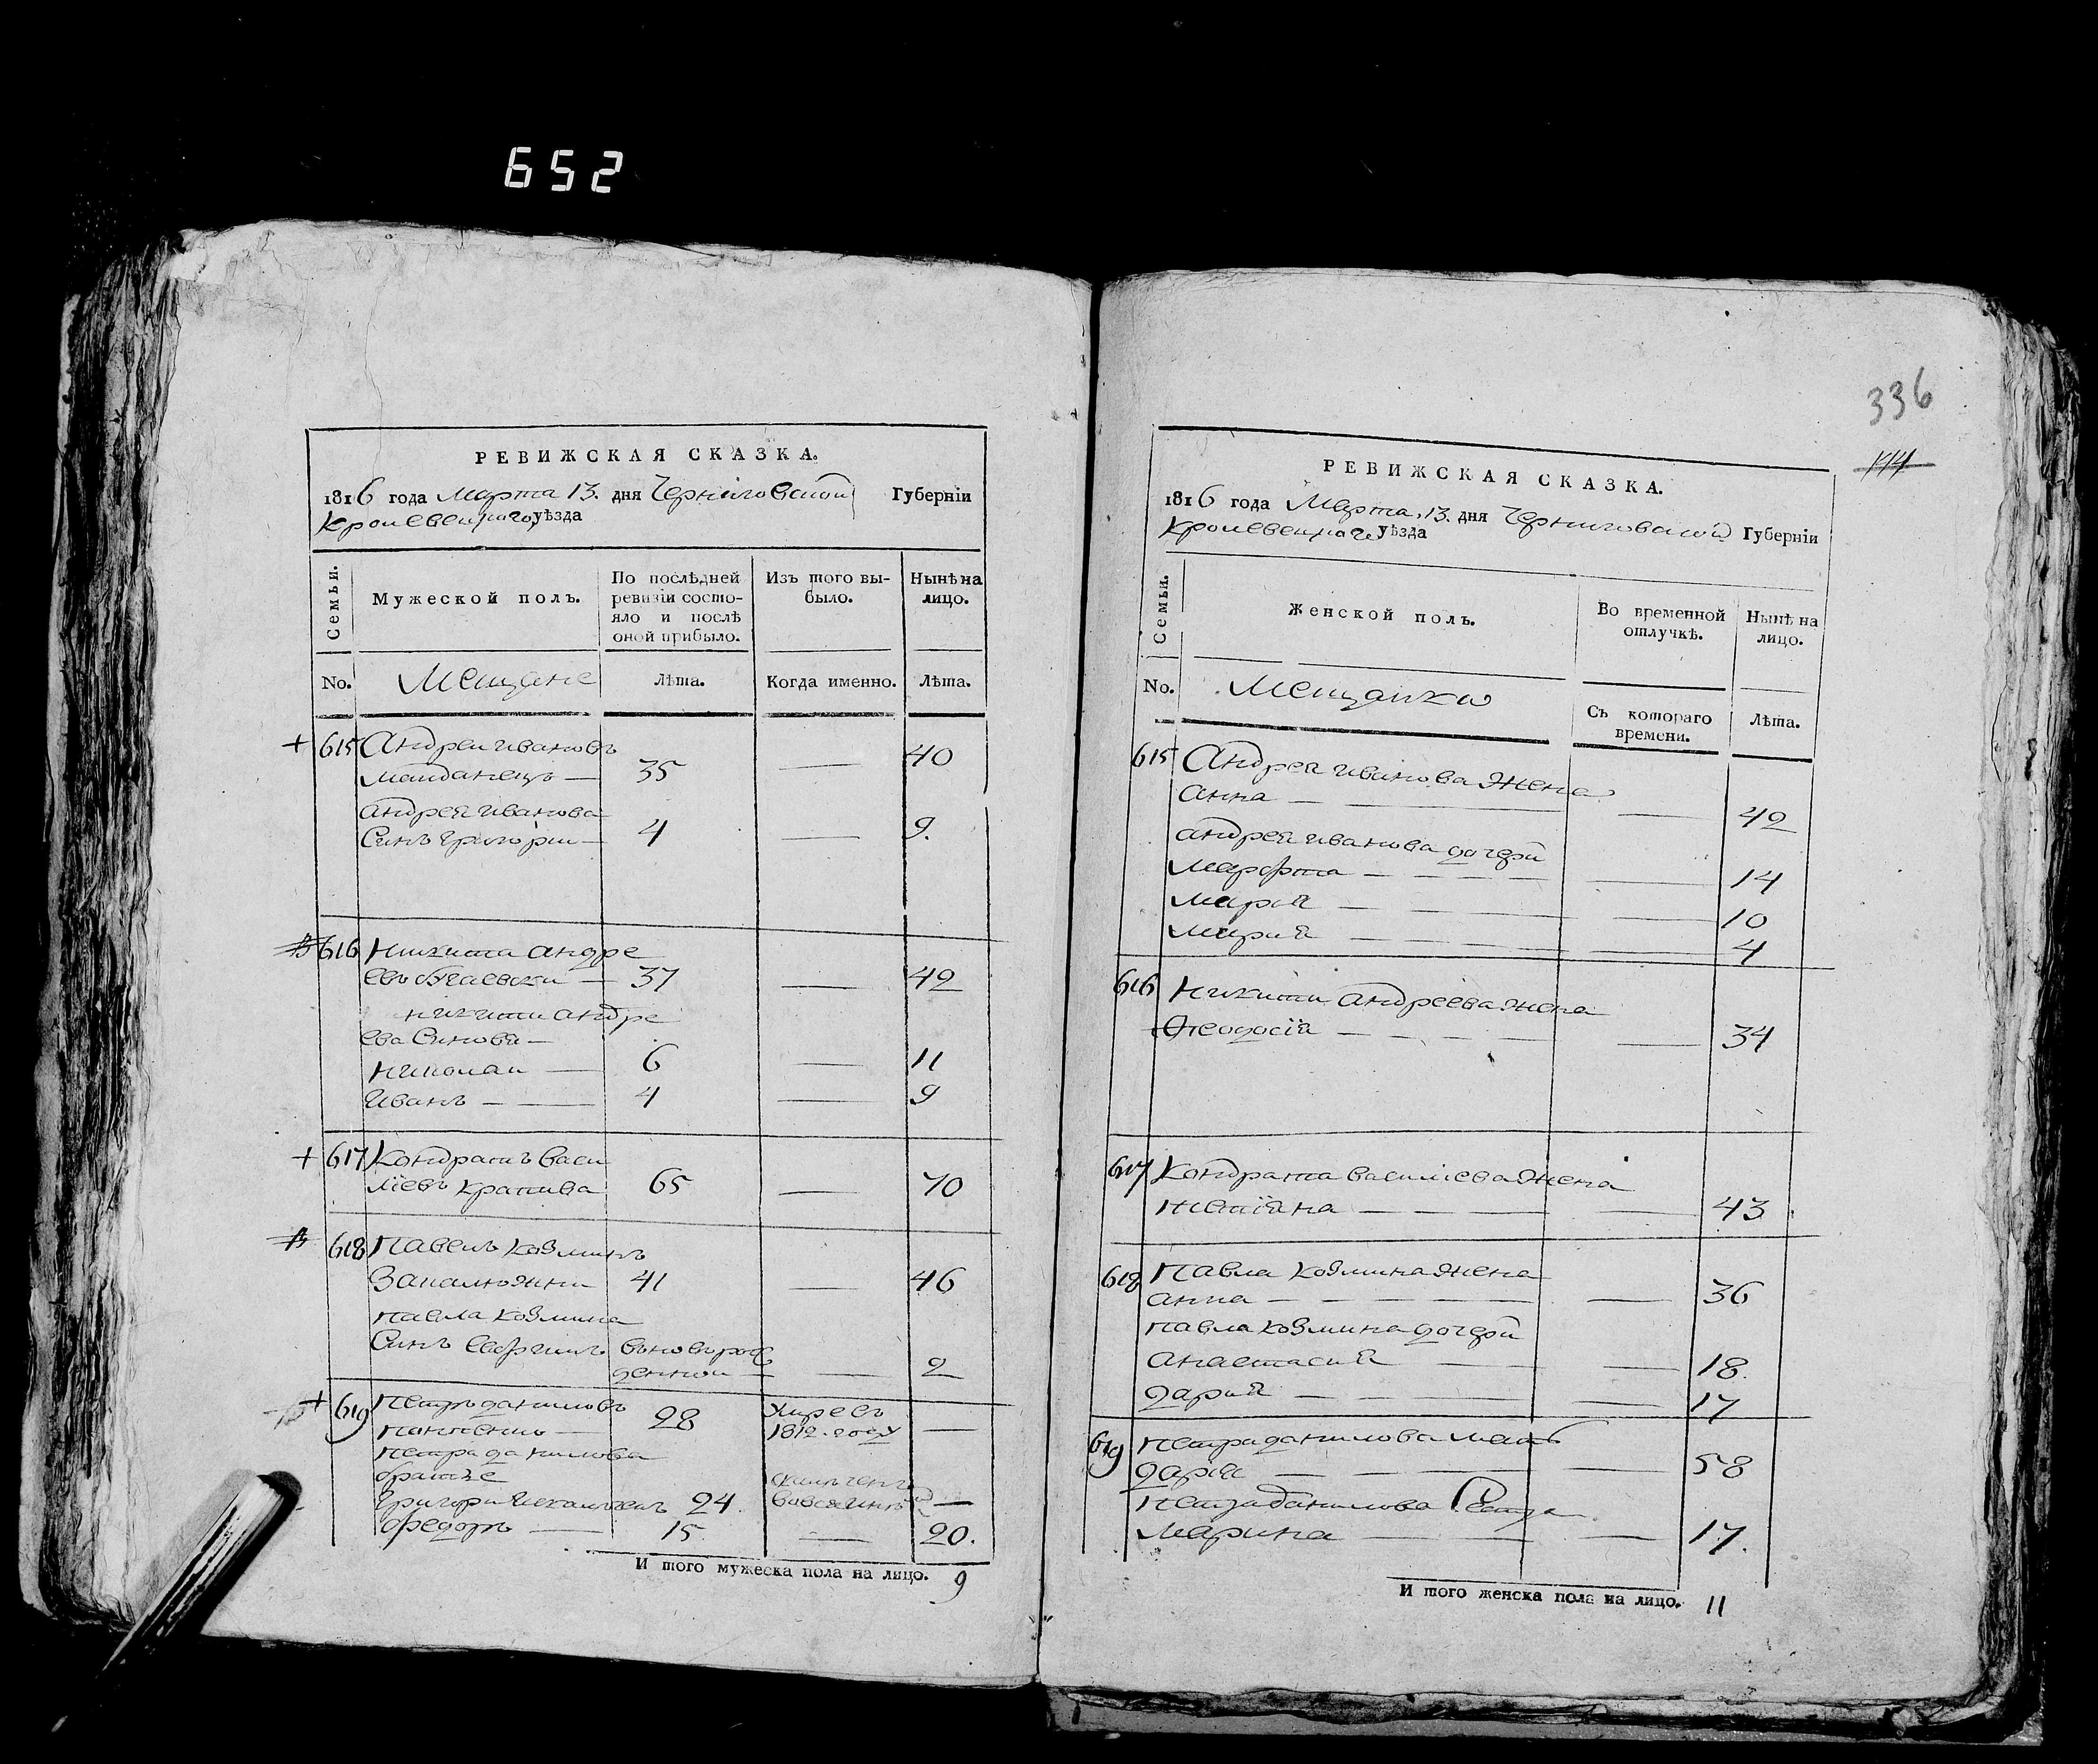 652
РЕВИЖСКАЯ СКАЗКА.
1816 года Марта 13. дня Черниговской Губерніи
Кролевецкаго уѣзда
Семьи.
Мужеской полъ.
По послѣдней
ревизіи состо-
яло и послѣ
оной прибыло.
Изъ того вы-
было.
Нынѣ на
лицо.
No. Мещане Лѣта. Когда именно. Лѣта.
+ 615 Андрей Ивановъ
Майданецъ — 35 — 40
Андрея Иванова
Синъ Григории — 4 — 9.
616 Никита Андре
евъ — 37 — 42
Никити Андре
ева Синовя —
Николаи — 6 — 11
Иванъ — — 4 — 9
+ 617 Кондратъ Васи
лїевъ Крапива 65 — 70
618 Павелъ Козминъ
41 — 46
Павла Козмина
Синъ вновь рож
денной — — 2
+ 619 Петръ Даниловъ
28 умре въ
1812. году —
Петра Данилова
братъе
Григори 24 —
Федоръ — 15 — 20.
И того мужеска пола на лицо. 9
336
РЕВИЖСКАЯ СКАЗКА.
1816 года Марта, 13. дня Черниговской Губерніи
Кролевецкаго уѣзда
Семьи.
Женской полъ.
Во временной
отлучкѣ.
Нынѣ на
лицо.
No. Мещанки
Съ котораго
времени.
Лѣта.
615 Андрея Иванова Жена
Анна — — — 42
Андрея Иванова дочери
Марфта — — — 14
Мария — — — 10
Мария — — — 4
616 Никити Андреева Жена
Ѳеодосїя — — — — 34
617 Кондрата Василїева Жена
— — — — 43
618 Павла Козмина Жена
Анна — — — — 36
Павла Козмина дочери
Анастасия — — 18.
Дария — — — 17
619 Петра Данилова мать
Дарїя — — — 58
Петра Данилова Сестра
Марина — — — 17.
И того женска пола на лицо. 11